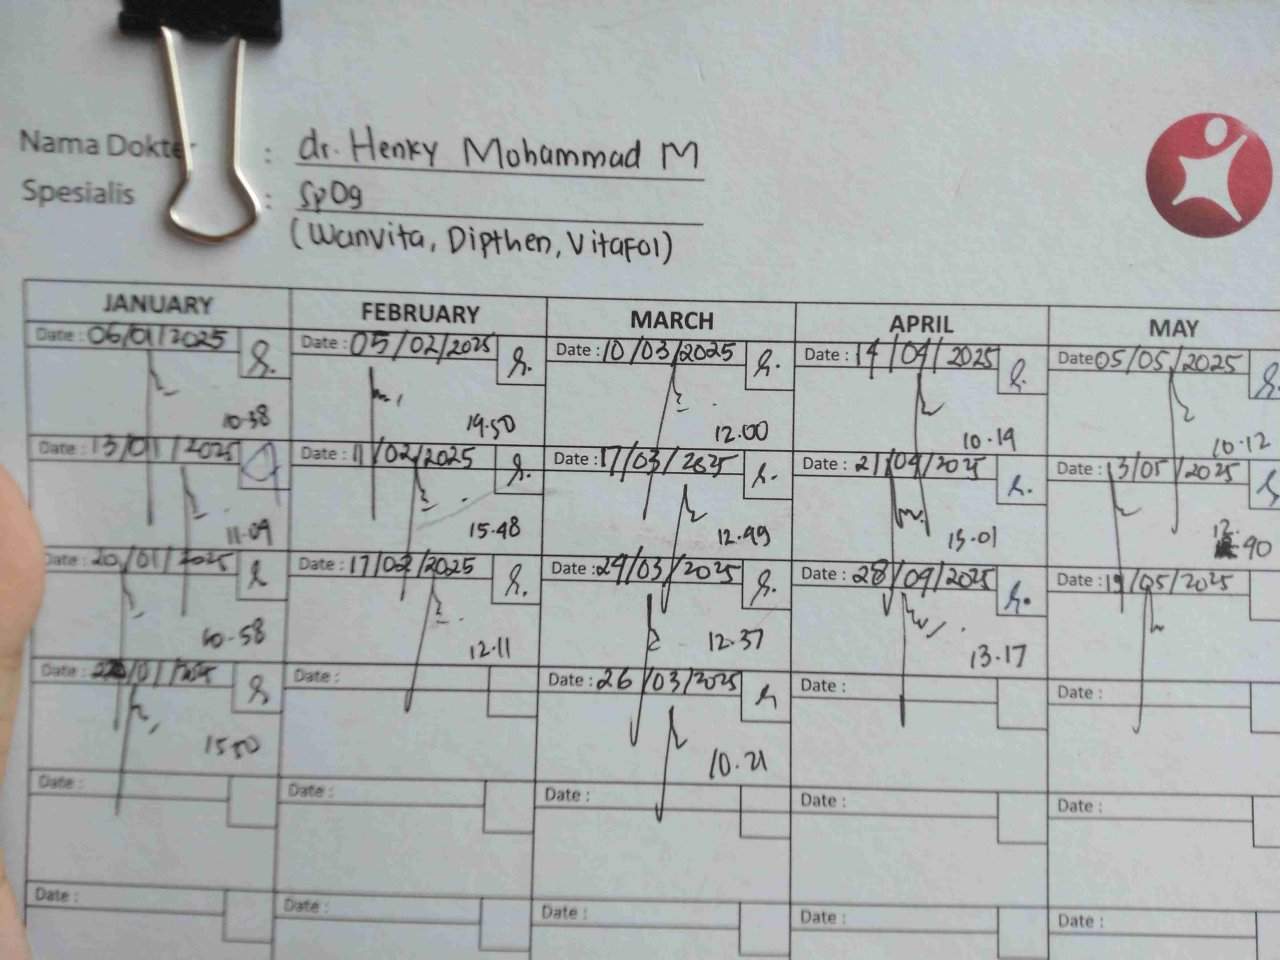 Nama Dokter : dr. Henky Mohammad M
Spesialis : SpOg
(Wanvita, Dipthen, Vitafol)
JANUARY FEBRUARY MARCH APRIL MAY
Date : 06/01/2025 Date : 05/02/2025 Date : 10/03/2025 Date : 14/04/2025 Date 05/05/2025
10.38 19.50 12.00 10.19 10.12
Date : 13/01/2025 Date : 11/02/2025 Date : 17/03/2025 Date : 21/04/2025 Date : 13/05/2025
11.09 15.48 12.49 15.01 12.40
Date : 20/01/2025 Date : 17/02/2025 Date : 24/03/2025 Date : 28/04/2025 Date : 19/05/2025
10.58 12.11 12.37 13.17
Date : Date : Date : 26/03/2025 Date : Date :
15.50 10.21
Date : Date : Date : Date : Date :
Date : Date : Date : Date : Date :